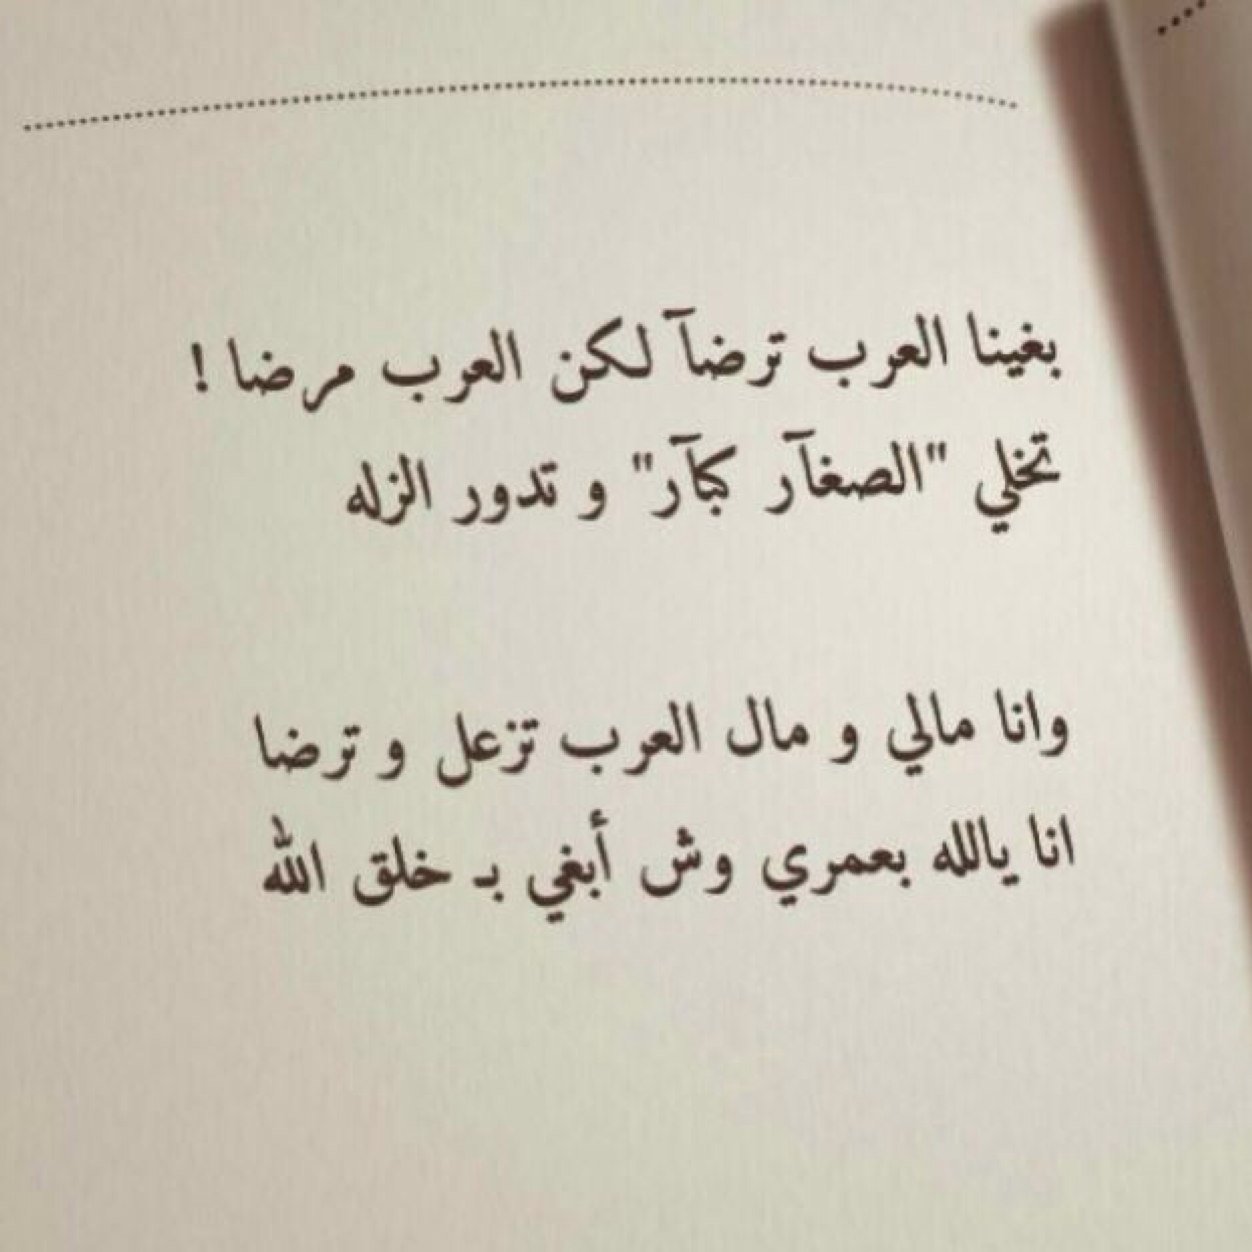 بغينا العرب ترضآ لكن العرب مرضا !
تخلي "الصغآر كبآر" و تدور الزله
وانا مالي و مال العرب تزعل و ترضا
انا يالله بعمري وش أبغي بـ خلق الله